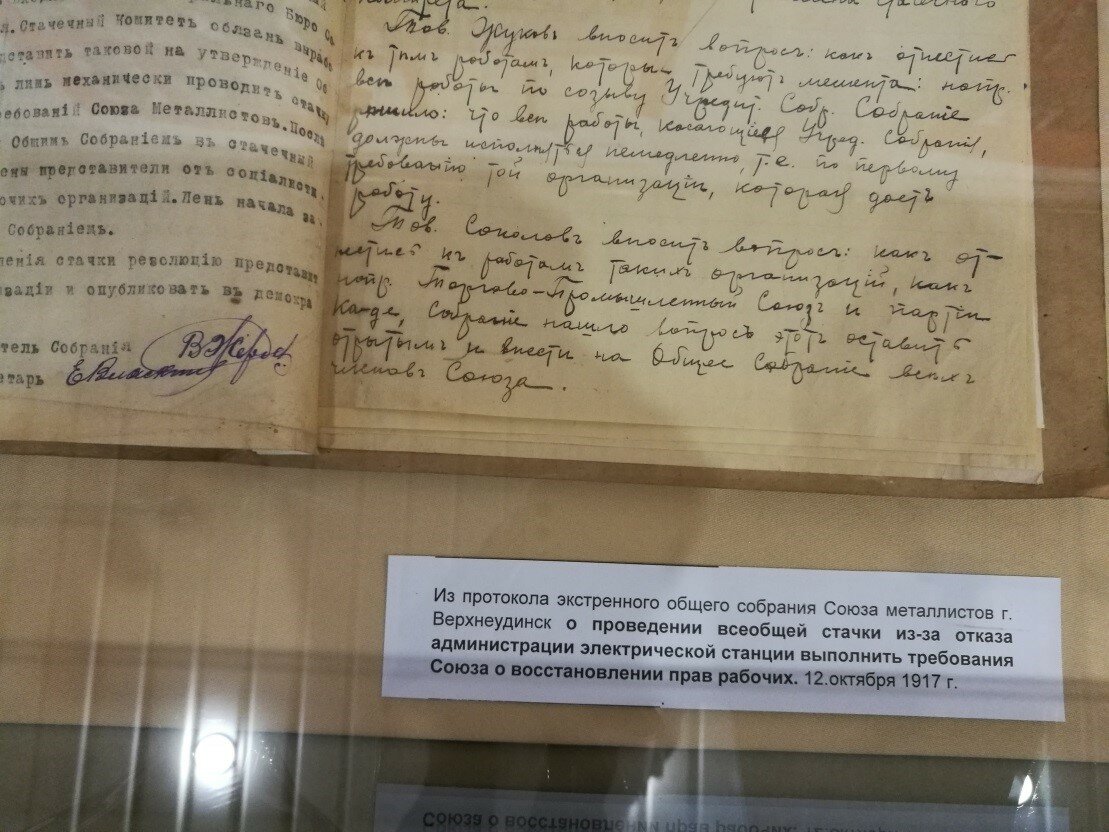 Стачечный Комитет обязан выраб
дставить таковой на утверждение Об
ь лишь механически проводить стачку
ребованій Союза Металлистов. После
Общимъ Собраніемъ въ стачечный
ены представители от соціалисти
очихъ организацій. День начала за
Собраніемъ.
ленія стачки революцію представит
изаціи и опубликовать въ демокра
тель Собранія
етарь
Тов. Жуковъ вноситъ вопросъ: какъ отнестись
къ тѣмъ работамъ, которыя требуютъ момента: напр.
всѣ работы по созыву Учредит. Собр. Собраніе
рѣшило: что всѣ работы, касающіяся Учред. Собранія,
должны исполняться немедленно, т.е. по первому
требованію той организаціи, которая дастъ
работу.
Тов. Соколовъ вноситъ вопросъ: какъ от-
нестись къ работамъ такихъ организацій, какъ
напр. Торгово-Промышленный Союзъ и партіи
Ка-де, Собраніе нашло вопросъ этотъ оставить
открытымъ и внести на Общее Собраніе всѣхъ
членовъ Союза.
Из протокола экстренного общего собрания Союза металлистов г.
Верхнеудинск о проведении всеобщей стачки из-за отказа
администрации электрической станции выполнить требования
Союза о восстановлении прав рабочих. 12.октября 1917 г.